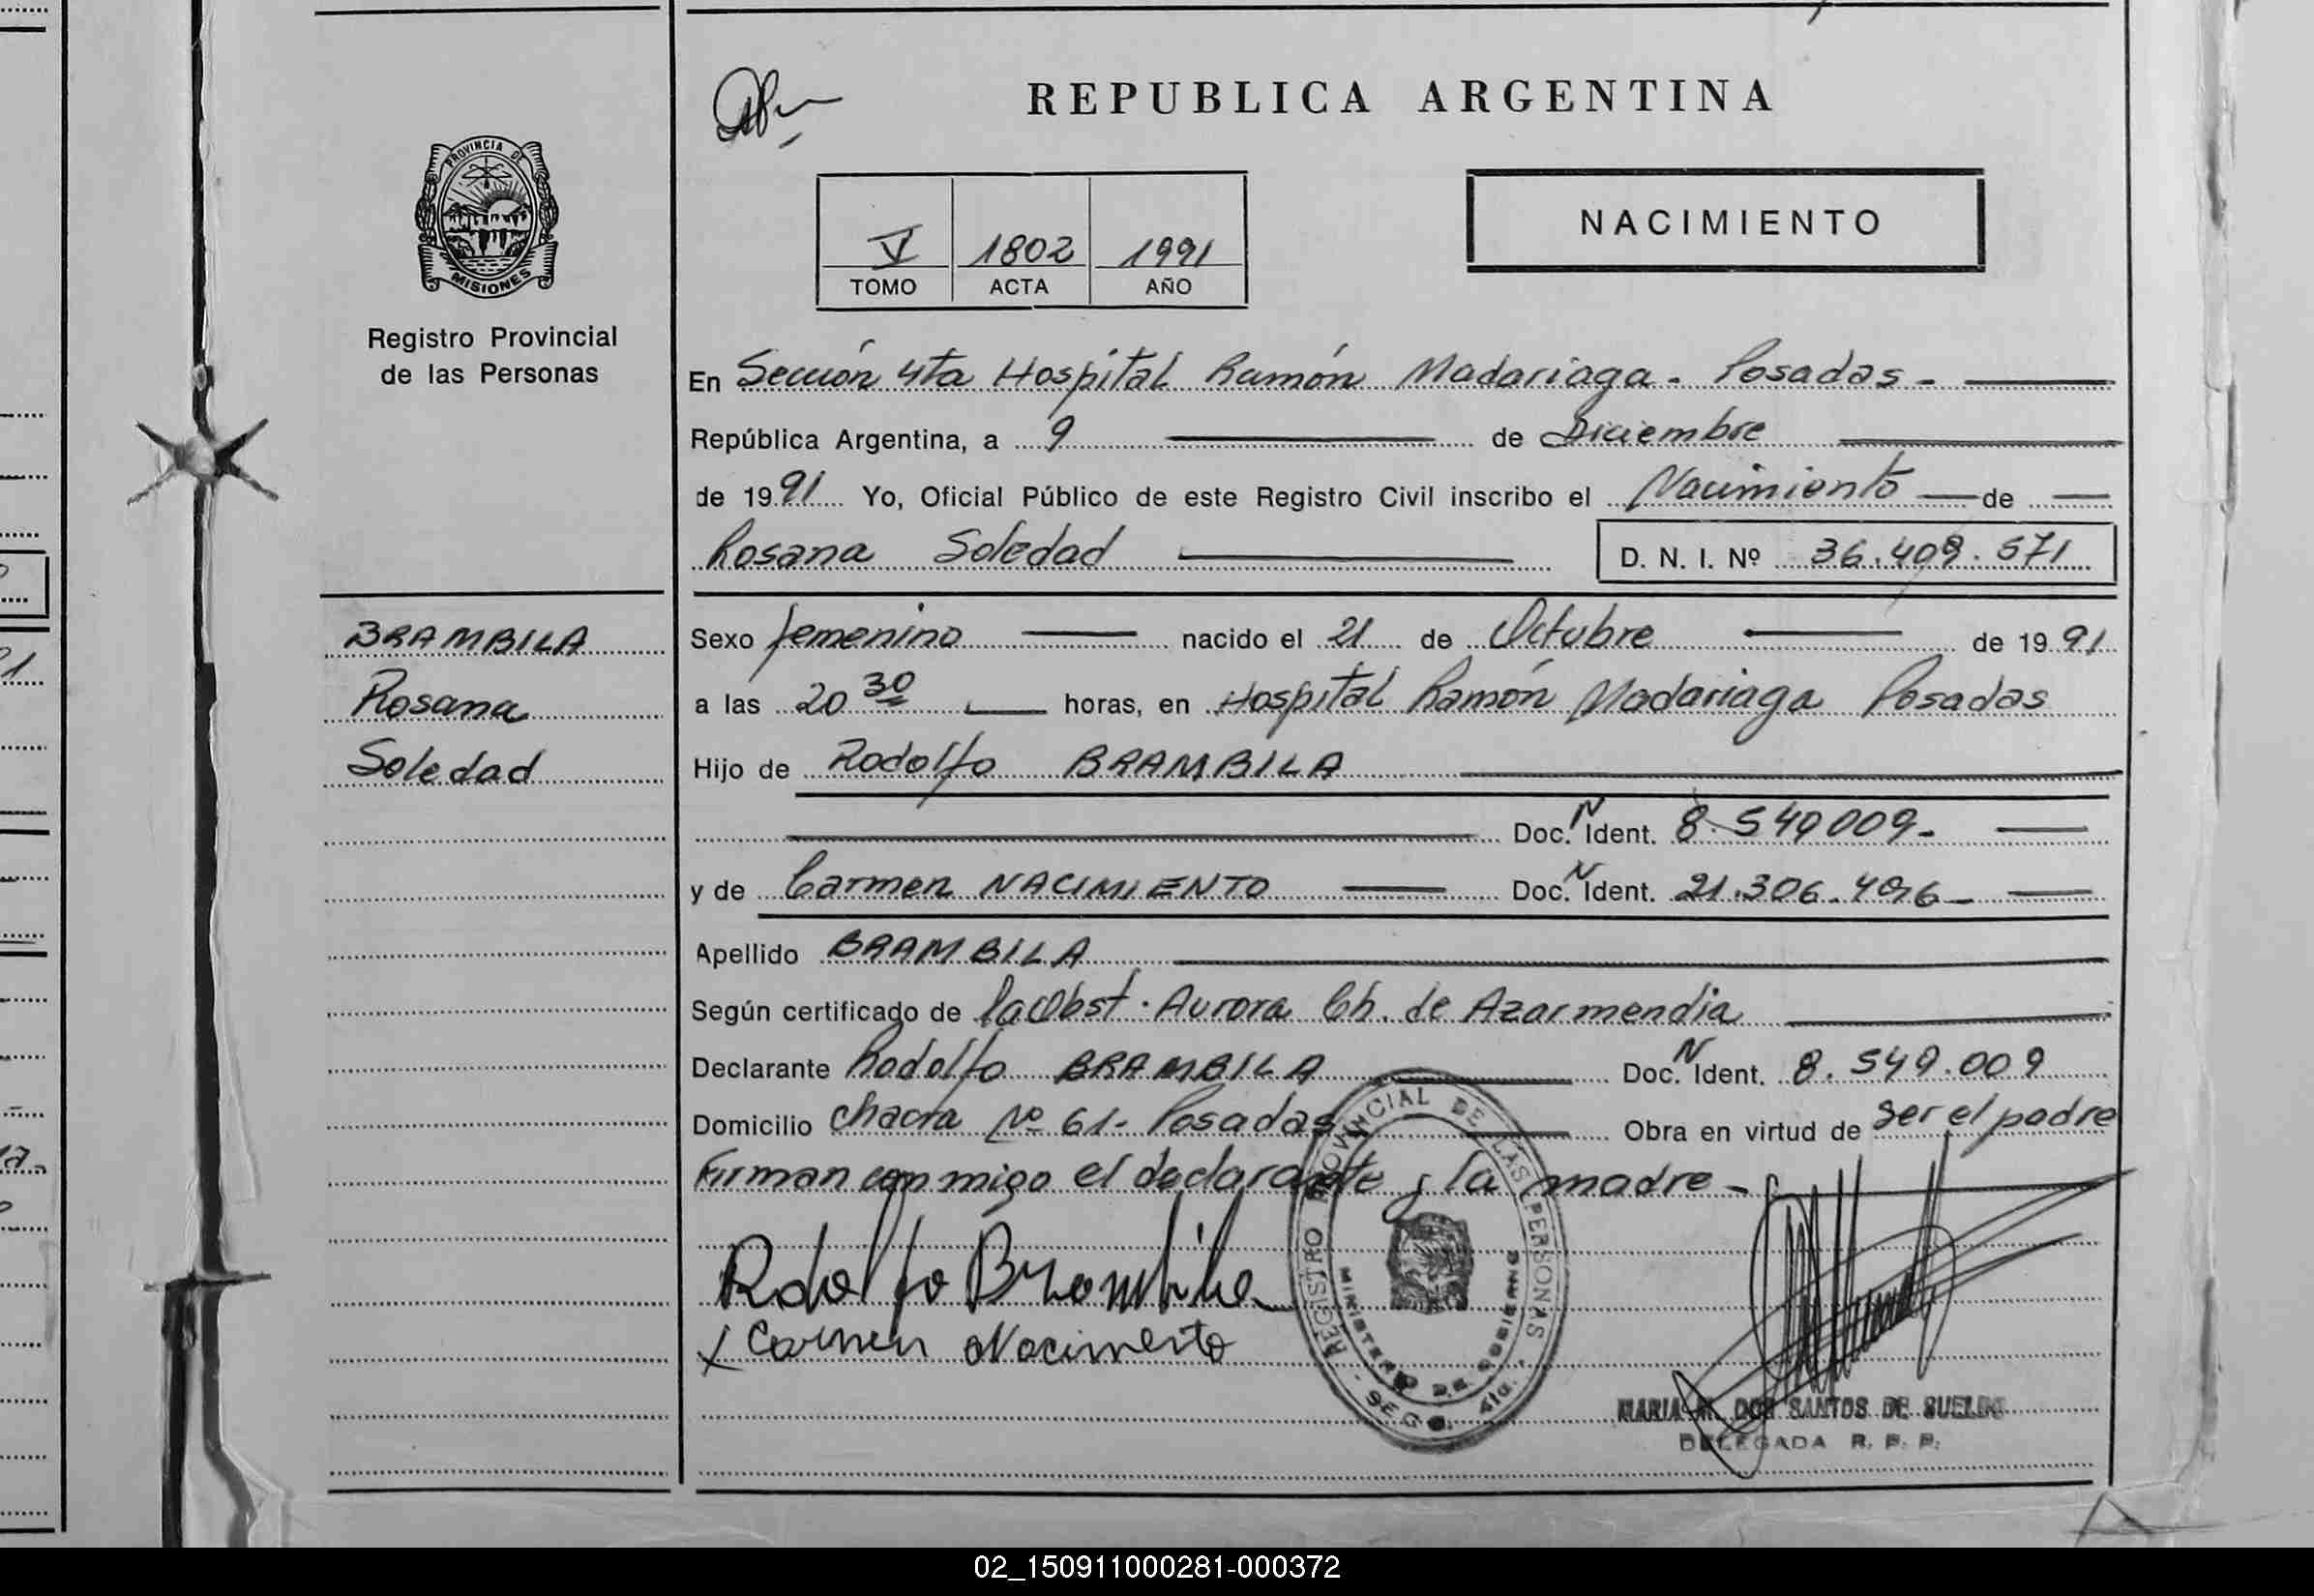 REPUBLICA ARGENTINA
PROVINCIA DE
MISIONES
Registro Provincial
de las Personas
NACIMIENTO
V 1802 1991
TOMO ACTA AÑO
En Sección 4ta Hospital Ramón Madariaga - Posadas -
República Argentina, a 9 de Diciembre
de 1991 Yo, Oficial Público de este Registro Civil inscribo el Nacimiento de
Rosana Soledad D. N. I. Nº 36.409.571
BRAMBILA
Rosana
Soledad
Sexo femenino nacido el 21 de Octubre de 1991
a las 20 30 horas, en Hospital Ramón Madariaga Posadas
Hijo de Rodolfo BRAMBILA
Doc. N Ident. 8.549009-
y de Carmen NACIMIENTO Doc. N Ident. 21.306.496-
Apellido BRAMBILA
Según certificado de Obst. Aurora Ch. de Azarmendia
Declarante Rodolfo BRAMBILA Doc. N Ident. 8.549.009
Domicilio Chacra Nº 61- Posadas Obra en virtud de ser el padre
Firman conmigo el declarante y la madre -
Rdolfo Brambila
x Carmen Nacimento
REGISTRO PROVINCIAL DE LAS PERSONAS
MINISTERIO DE GOBIERNO
SECC. 4ta.
MARIA DOS SANTOS DE SUELDO
DELEGADA R. P. P.
02_150911000281-000372